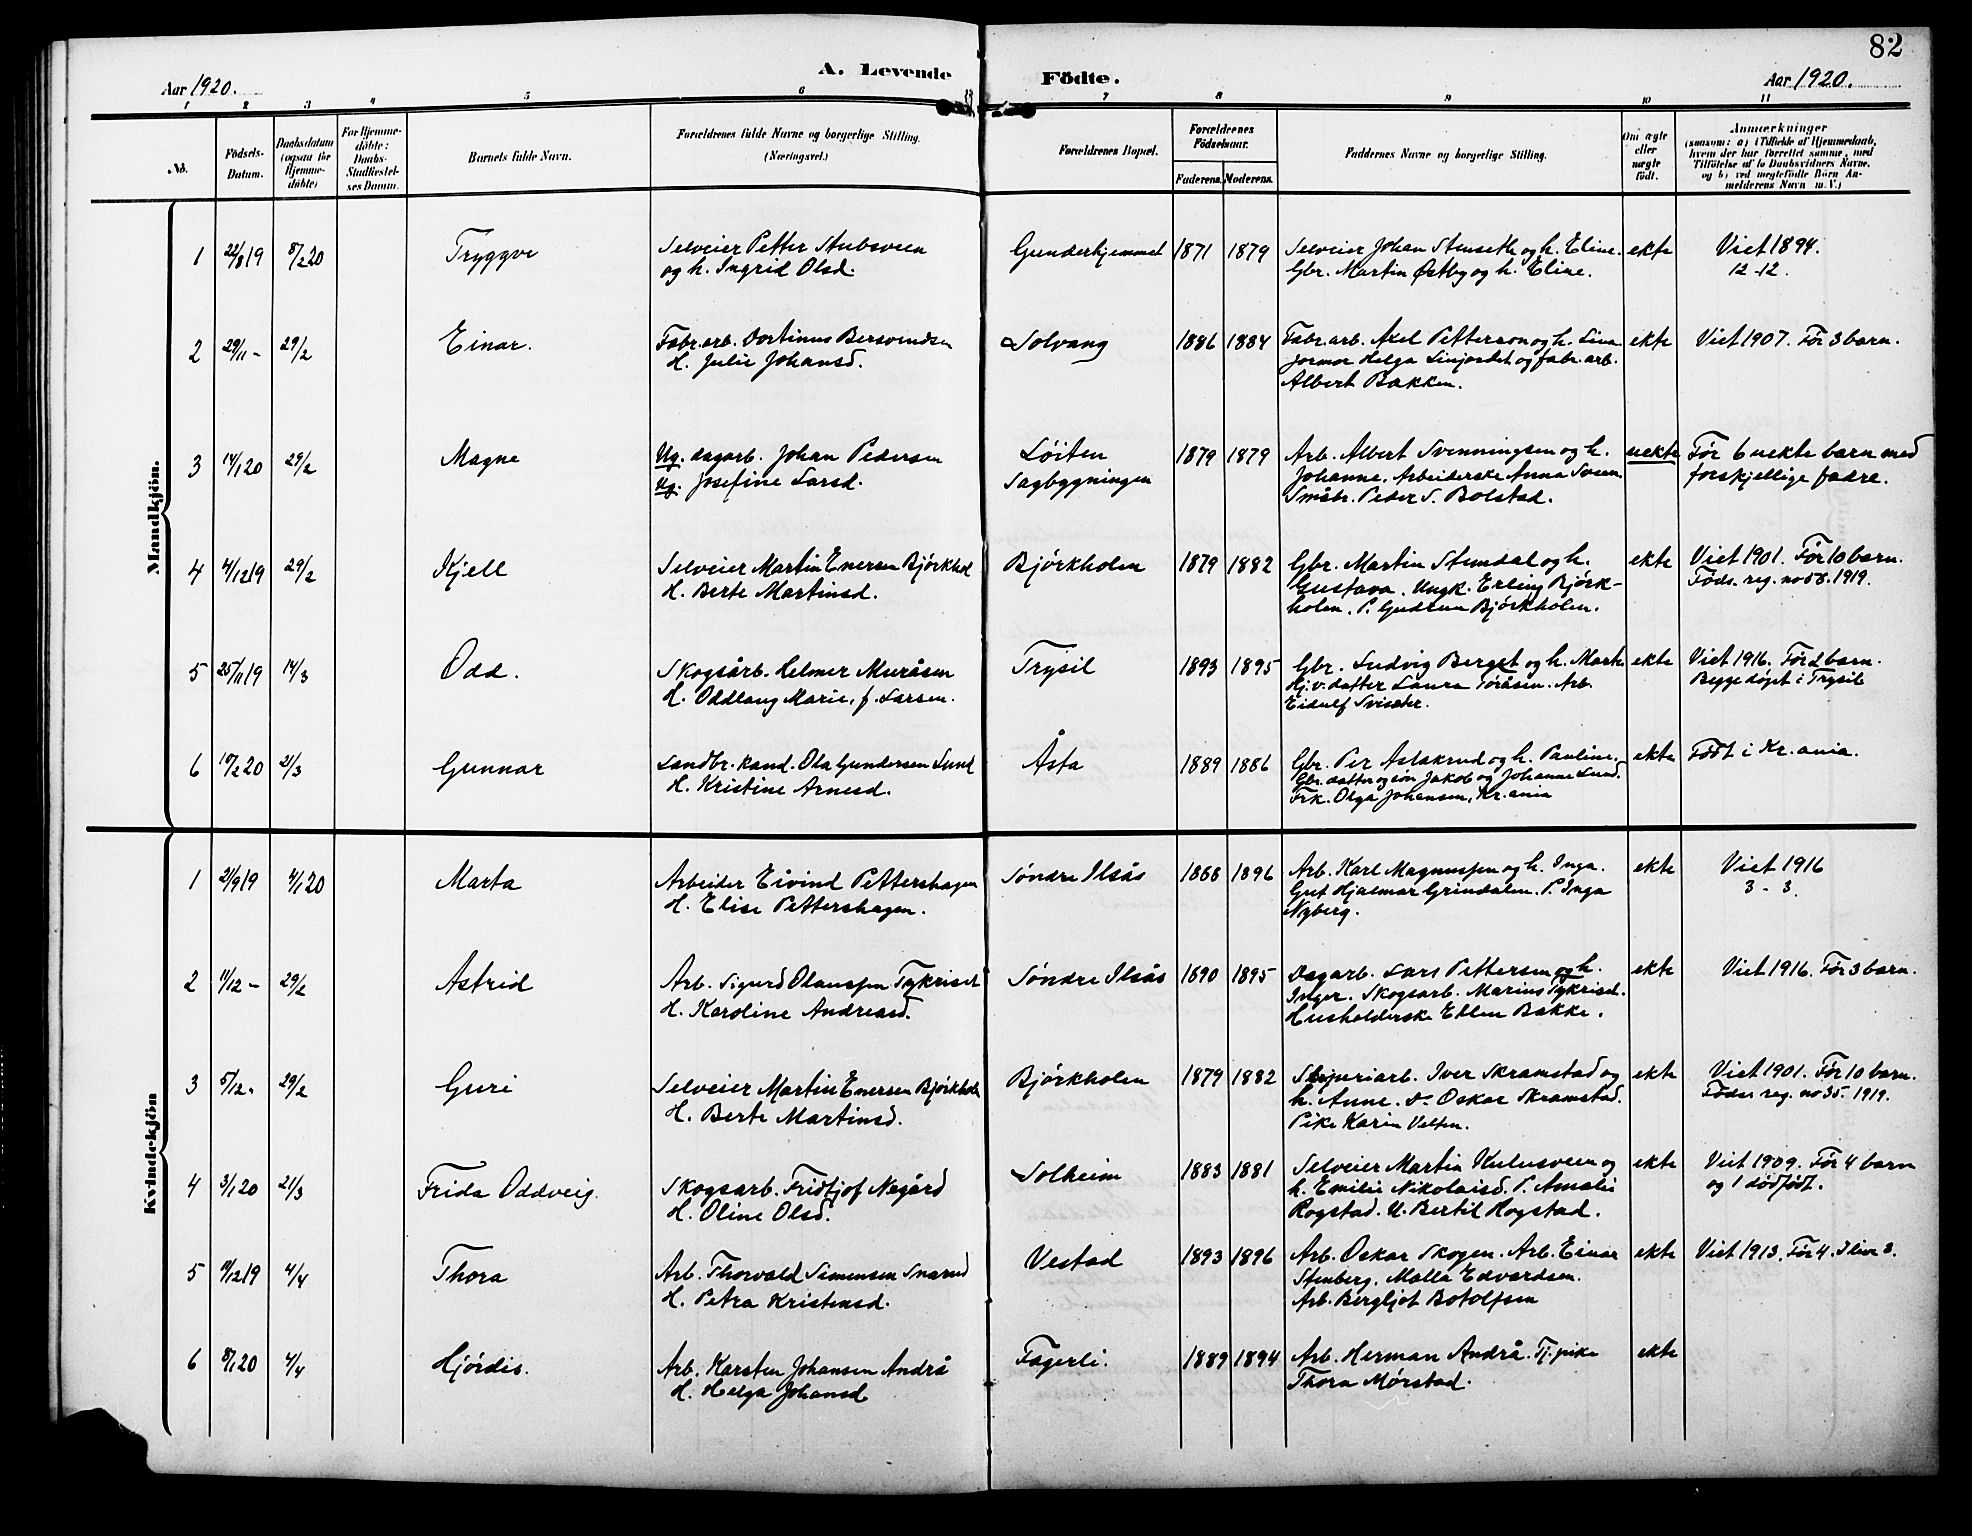 82
Aar 1920.
A. Levende
Födte.
Aar 1920.
1 2 3 4 5 6 7 8 9 10 11
No.
Födsels-Datum.
Daabsdatum (ogsaa for Hjemme-döbte)
For Hjemme-döbte: Daabs-Stadfæstel-ses Datum.
Barnets fulde Navn.
Forældrenes fulde Navne og borgerlige Stilling. (Næringsvei.)
Forældrenes Bopæl.
Forældrenes Födselsaar.
Faderens. Moderens.
Faddernes Navne og borgerlige Stilling.
Om ægte eller uægte födt.
Anmærkninger
(saasom: a) i Tilfælde af Hjemmedaab, hvem der har forrettet samme, med Tilföielse af to Daabsvidners Navne, og b) ved uægtefödte Börn An-melderens Navn m. V.)
Mandkjön.
1 22/8 19 8/2 20 Tryggve Selveier Petter Stubsveen Gunderhjemmet 1871 1879 Selveier Johan Stenseth og h. Eline. ekte Viet 1894.
og h. Ingrid Olsd. Gbr. Martin Østby og h. Eline. 12-12.
2 29/11 - 29/2 Einar. Fabr.arb. Bersvendsen Solvang 1886 1884 Fabr.arb. Axel Petterson og h. Lina ekte Viet 1907. Før 3 barn.
H. Julie Johansd. Helga og fabr.arb.
Albert Bakken.
3 14/1 20 29/2 Magne Ug. dagarb. Johan Pedersen Løiten 1879 1879 Arb. Albert Svenningsen og h. uekte Før 6 uekte barn med
Ug. Josefine Larsd. Sagbygningen Johanne. Arbeiderske Anna Sveen forskjellige fædre.
Småbr. Peder S. Bolstad.
4 4/12 19 29/2 Kjell Selveier Martin Enersen Bjørkhol Bjørkholen 1879 1882 Gbr. Martin Stendal og h. ekte Viet 1901. Før 10 barn.
H. Berte Martinsd. Gustava. Ungk. Erling Bjørk- Føds. reg. no 58. 1919.
holen. P. Gudrun Bjørkholen.
5 25/11 19 14/3 Odd. Skogsarb. Helmer Muråsen Trysil 1893 1895 Gbr. Ludvig Berget og h. Marte ekte Viet 1916. Før 2 barn.
H. Oddlaug Marie, f. Larsen. Hj.v. datter Laura Toråsen. Arb. Begge døpt i Trysil
Eidulf
6 19/2 20 21/3 Gunnar Landbr. kand. Ola Gundersen Lund Åsta 1889 1886 Gbr. Per Aslakrud og h. Pauline. ekte Født i Kr.ania.
H. Kristine Arnesd. Gbr. datter og søn Jakob og Johanne Lund.
Frk. Olga Johansen, Kr.ania
Kvindekjön
1 21/9 19 4/1 20 Marta Arbeider Eivind Pettershagen Søndre Ilsås 1888 1896 Arb. Karl Magnussen og h. Inga. ekte Viet 1916
H. Elise Pettershagen. Gut Hjalmar Grindalen. P. Inga 3 - 3.
Nyberg.
2 11/12 - 29/2 Astrid Arb. Sigurd Olaussen Tykriset Søndre Ilsås 1890 1895 Dagarb. Lars Pettersen og h. ekte Viet 1916. Før 3 barn.
H. Karoline Andreasd. Inger. Skogsarb. Marius Tykriset.
Husholderske Ellen Bakke.
3 5/12 " 29/2 Guri Selveier Martin Enersen Bjørkhole Bjørkholen 1879 1882 Sliperiarb. Iver Skramstad og ekte Viet 1901. Før 10 barn.
H. Berte Martinsd. h. Anne. S. Oskar Skramstad. Føds. reg. no 35. 1919.
Pike Karin Velten.
4 3/1 20 21/3 Frida Oddveig. Skogsarb. Fridtjof Negård Solheim 1883 1881 Selveier Martin Kulusveen og ekte Viet 1909. Før 4 barn
H. Oline Olsd. h. Emilie Nikolaisd. P. Amalie og 1 dødfødt.
Rogstad. U. Bertil Rogstad.
5 11/12 19 4/4 Thora Arb. Thorvald Simensen Snarud Vestad 1893 1896 Arb. Oskar Skogen. Arb. Einar ekte Viet 1913. Før 4. I live 3.
H. Petra Kristensd. Stenberg. Malla Edvardsen.
Arb. Bergljot Botolfsen
6 8/1 20 4/4 Hjørdis. Arb. Karsten Johansen Andrå Fagerli. 1889 1894 Arb. Herman Andrå. Tj.pike ekte
H. Helga Johansd Thora Mørstad.